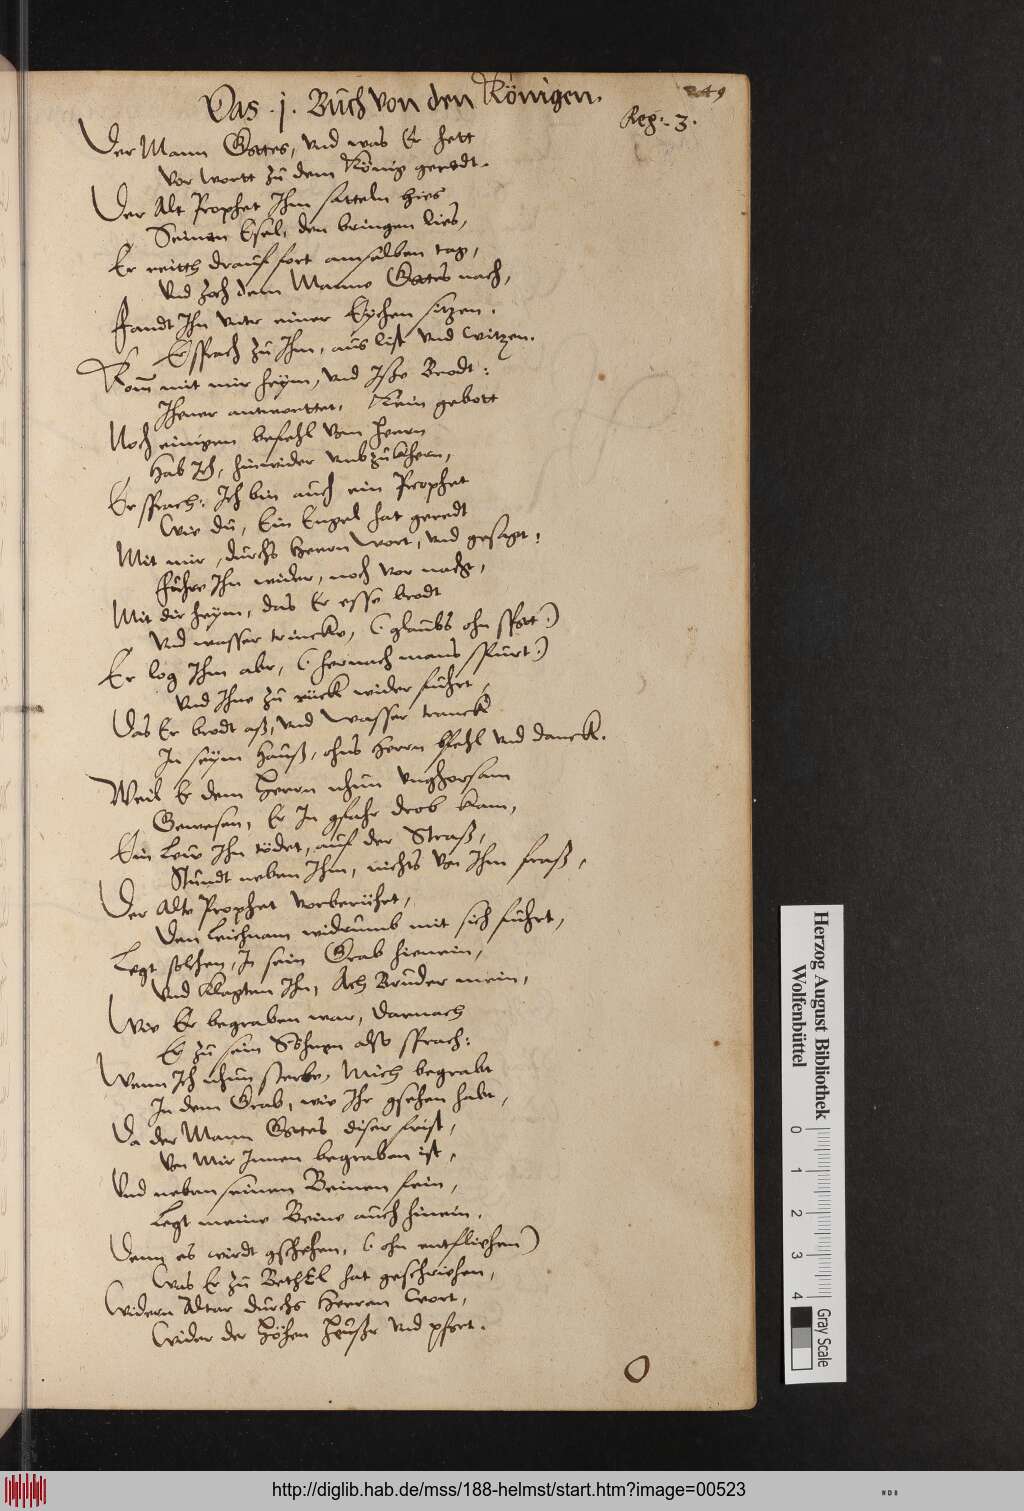 249
Das .j. Buch von den Königen.
Reg: 3.
Der Mann Gottes, vnd was Er hett
Vor wortt zu dem König geredt.
Der Alt Prophet Ihm satteln hies
Seinen Esel, den bringen lies,
Er reitth drauf fort amselben tag,
Vnd zoch dem Manne Gottes nach,
Fandt Ihn vnter einer Eychen sitzen.
Er sprach zu Ihm, aus list vnd witzen.
Kom mit mir heym, vnd Isße Brodt:
Ihener antworttet, Kein gebott
Noch einigen befehl vom Herrn
Hab Ich, hinwider vmbzukhern,
Er sprach: Ich bin auch ein Prophet
Wie du, Ein Engel hat geredt
Mit mir, durchs Herrn wort, vnd gesagt:
Führe Ihn wider, noch vor nacht,
Mit dir heym, das Er esse brodt
Vnd wasser trincke, (: glaubs ohn spott:)
Er log Ihm aber, (: hernach mans spürt:)
Vnd Ihne zu rück wider führt,
Das Er brodt aß, vnd wasser tranck
In seym Hauß, ohns Herrn bfehl vnd danck.
Weil Er dem Herrn nhun vnghorsam
Gewesen, Er In gfahr drob kam,
Ein Lew Ihn tödet, auf der Straß,
Stundt neben Ihm, nichts von Ihm fraß,
Der Alte Prophet vorberühet,
Den leichnam widrumb mit sich führt,
Legt solchen, In sein Grab hienein,
Vnd klagten Ihn, Ach Bruder mein,
Wie Er begraben war, darnach
Er zu sein Söhnen also sprach:
Wenn Ich nhun sterbe, Mich begrabt
In dem Grab, wie Ihr gsehen habt,
Da der Mann Gottes diser frist,
Von Mir Innen begraben ist,
Vnd neben seinen Beinen fein,
Legt meine Beine auch hinein.
Denn es wirdt gschehen, (: ohn entfliehen)
Was Er zu BethEl hat geschriehen,
Widern Altar durchs Herren wort,
Wider der Höhen Heußr vnd pfort.
Herzog August Bibliothek
Wolfenbüttel
0 1 2 3 4
Gray Scale
http://diglib.hab.de/mss/188-helmst/start.htm?image=00523